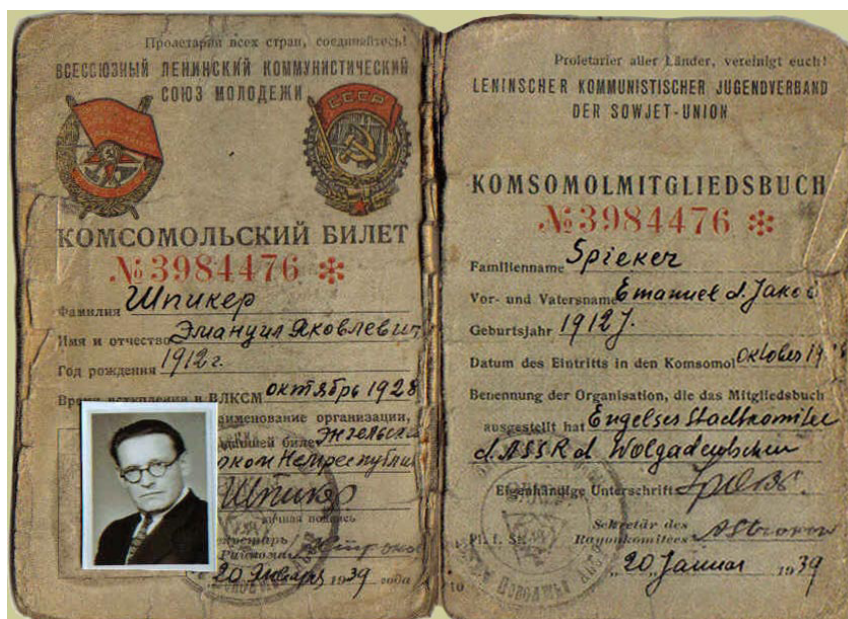 Пролетарии всех стран, соединяйтесь!
ВСЕСОЮЗНЫЙ ЛЕНИНСКИЙ КОММУНИСТИЧЕСКИЙ
СОЮЗ МОЛОДЕЖИ
СССР
КОМСОМОЛЬСКИЙ БИЛЕТ
№3984476 *
Фамилия Шпикер
Имя и отчество Эмануил Яковлевич
Год рождения 1912 г.
Время вступления в ВЛКСМ октябрь 1928
наименование организации,
билет Энгельский
горком Немреспублики
Шпикер
личная подпись
Секретарь
Райкома
20 Января 1939 года
Proletarier aller Länder, vereinigt euch!
LENINSCHER KOMMUNISTISCHER JUGENDVERBAND
DER SOWJET-UNION
KOMSOMOLMITGLIEDSBUCH
№3984476 *
Familienname Spieker
Vor- und Vatersname Emanuel d. Jakob
Geburtsjahr 1912 J.
Datum des Eintritts in den Komsomol Oktober
Benennung der Organisation, die das Mitgliedsbuch
ausgestellt hat Engelser Stadtkomitee
d. ASSR d. Wolgadeutschen
Eigenhändige Unterschrift
Sekretär des
Pl. f. S. Rayonkomitees
"20" Januar 1939